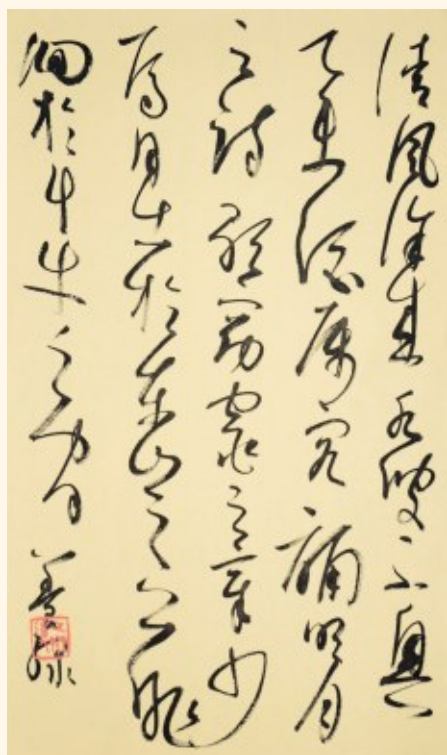 清風徐來水波不興
舉酒屬客誦明月
之詩歌窈窕之章少
焉月出於東山之上徘
徊於斗牛之間